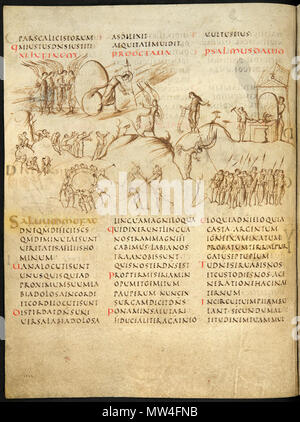 PARSCALICISEORUM
QMIUSTUSDNSIUSTITI
ASDILEXIT
AEQUITATEMUIDIT
UULTUSEIUS
XI INFINEM
PROOCTAUA
PSALMUSDAUID
SALUUMMEFAC
DNEQMDEFECITSCS
QMDIMINUTAESUNT
UERITATESAFILIISHO
MINUM
UANALOCUTISUNT
UNUSQUISQUEAD
PROXIMUMSUUMLA
BIADOLOSAINCORDE
ETCORDELOCUTISUNT
DISPERDATDNSUNI
UERSALABIADOLOSA
LINGUAMAGNILOQUA
QUIDIXERUNTLINGUA
NOSTRAMMAGNIFI
CABIMUSLABIA
QUISNOSTERDNSEST
PROPTERMISERIAMIN
OPUMETGEMITUM
PAUPERUMNUNCEX
SURGAMDICITDNS
PONAMINSALUTARI
FIDUCIALITERAGAMINEO
ELOQUIADNIELOQUIA
CASTAARGENTUM
IGNEEXAMINATUM
PROBATUMTERRAEPUR
GATUMSEPTUPLUM
TUDNESERUABISNOS
ETCUSTODIESNOSAGE
NERATIONEHACINAE
TERNUM
INCIRCUITUIMPIIAMBU
LANTSECUNDUMAL
alamy
Image ID: MW4FNB
www.alamy.com